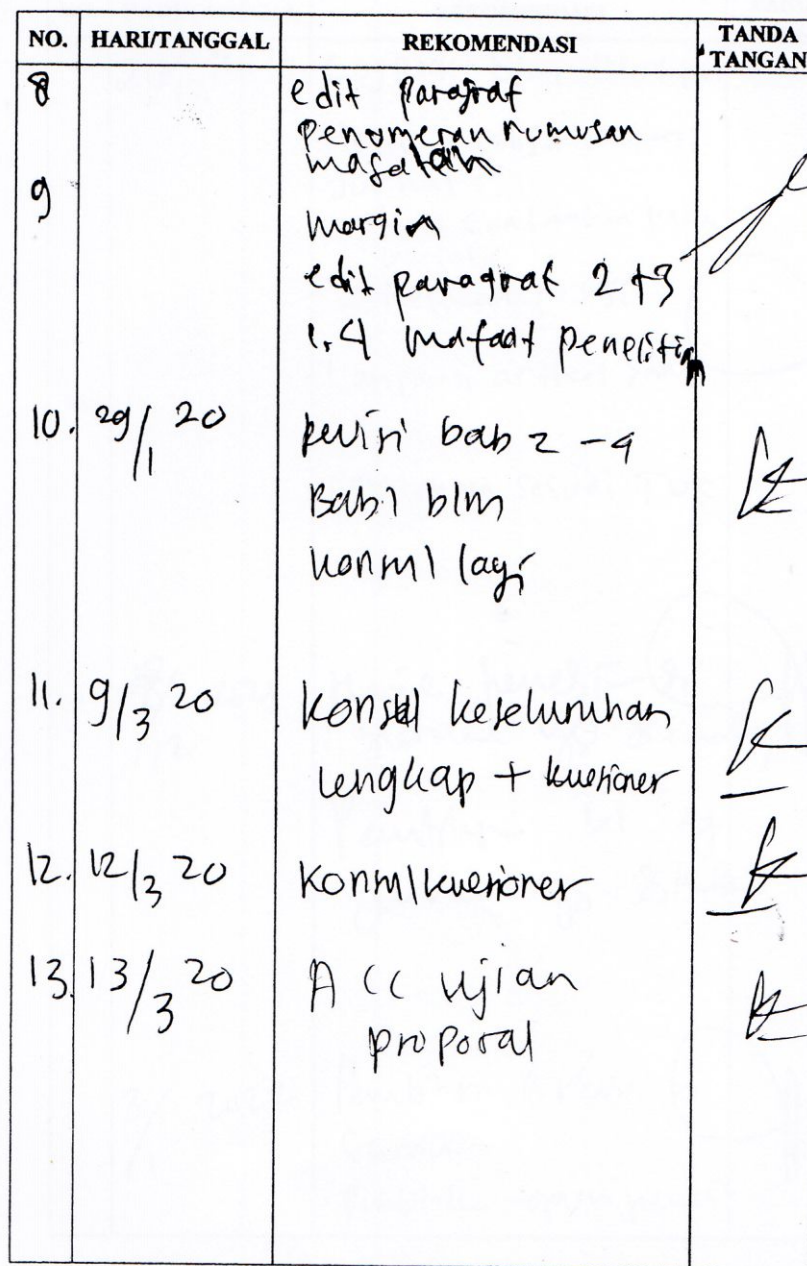 NO. HARI/TANGGAL REKOMENDASI TANDA TANGAN
8 edit paragraf
penomeran rumusan
masalah
9 margin
edit paragraf 2 + 3
1.4 mafaat penelitin
10. 29/1 20 revisi bab 2 - 4
Bab 1 blm
konsul lagi
11. 9/3 20 konsul keseluruhan
lengkap + kuesioner
12. 12/3 20 konsul kuesioner
13. 13/3 20 ACC ujian
proposal